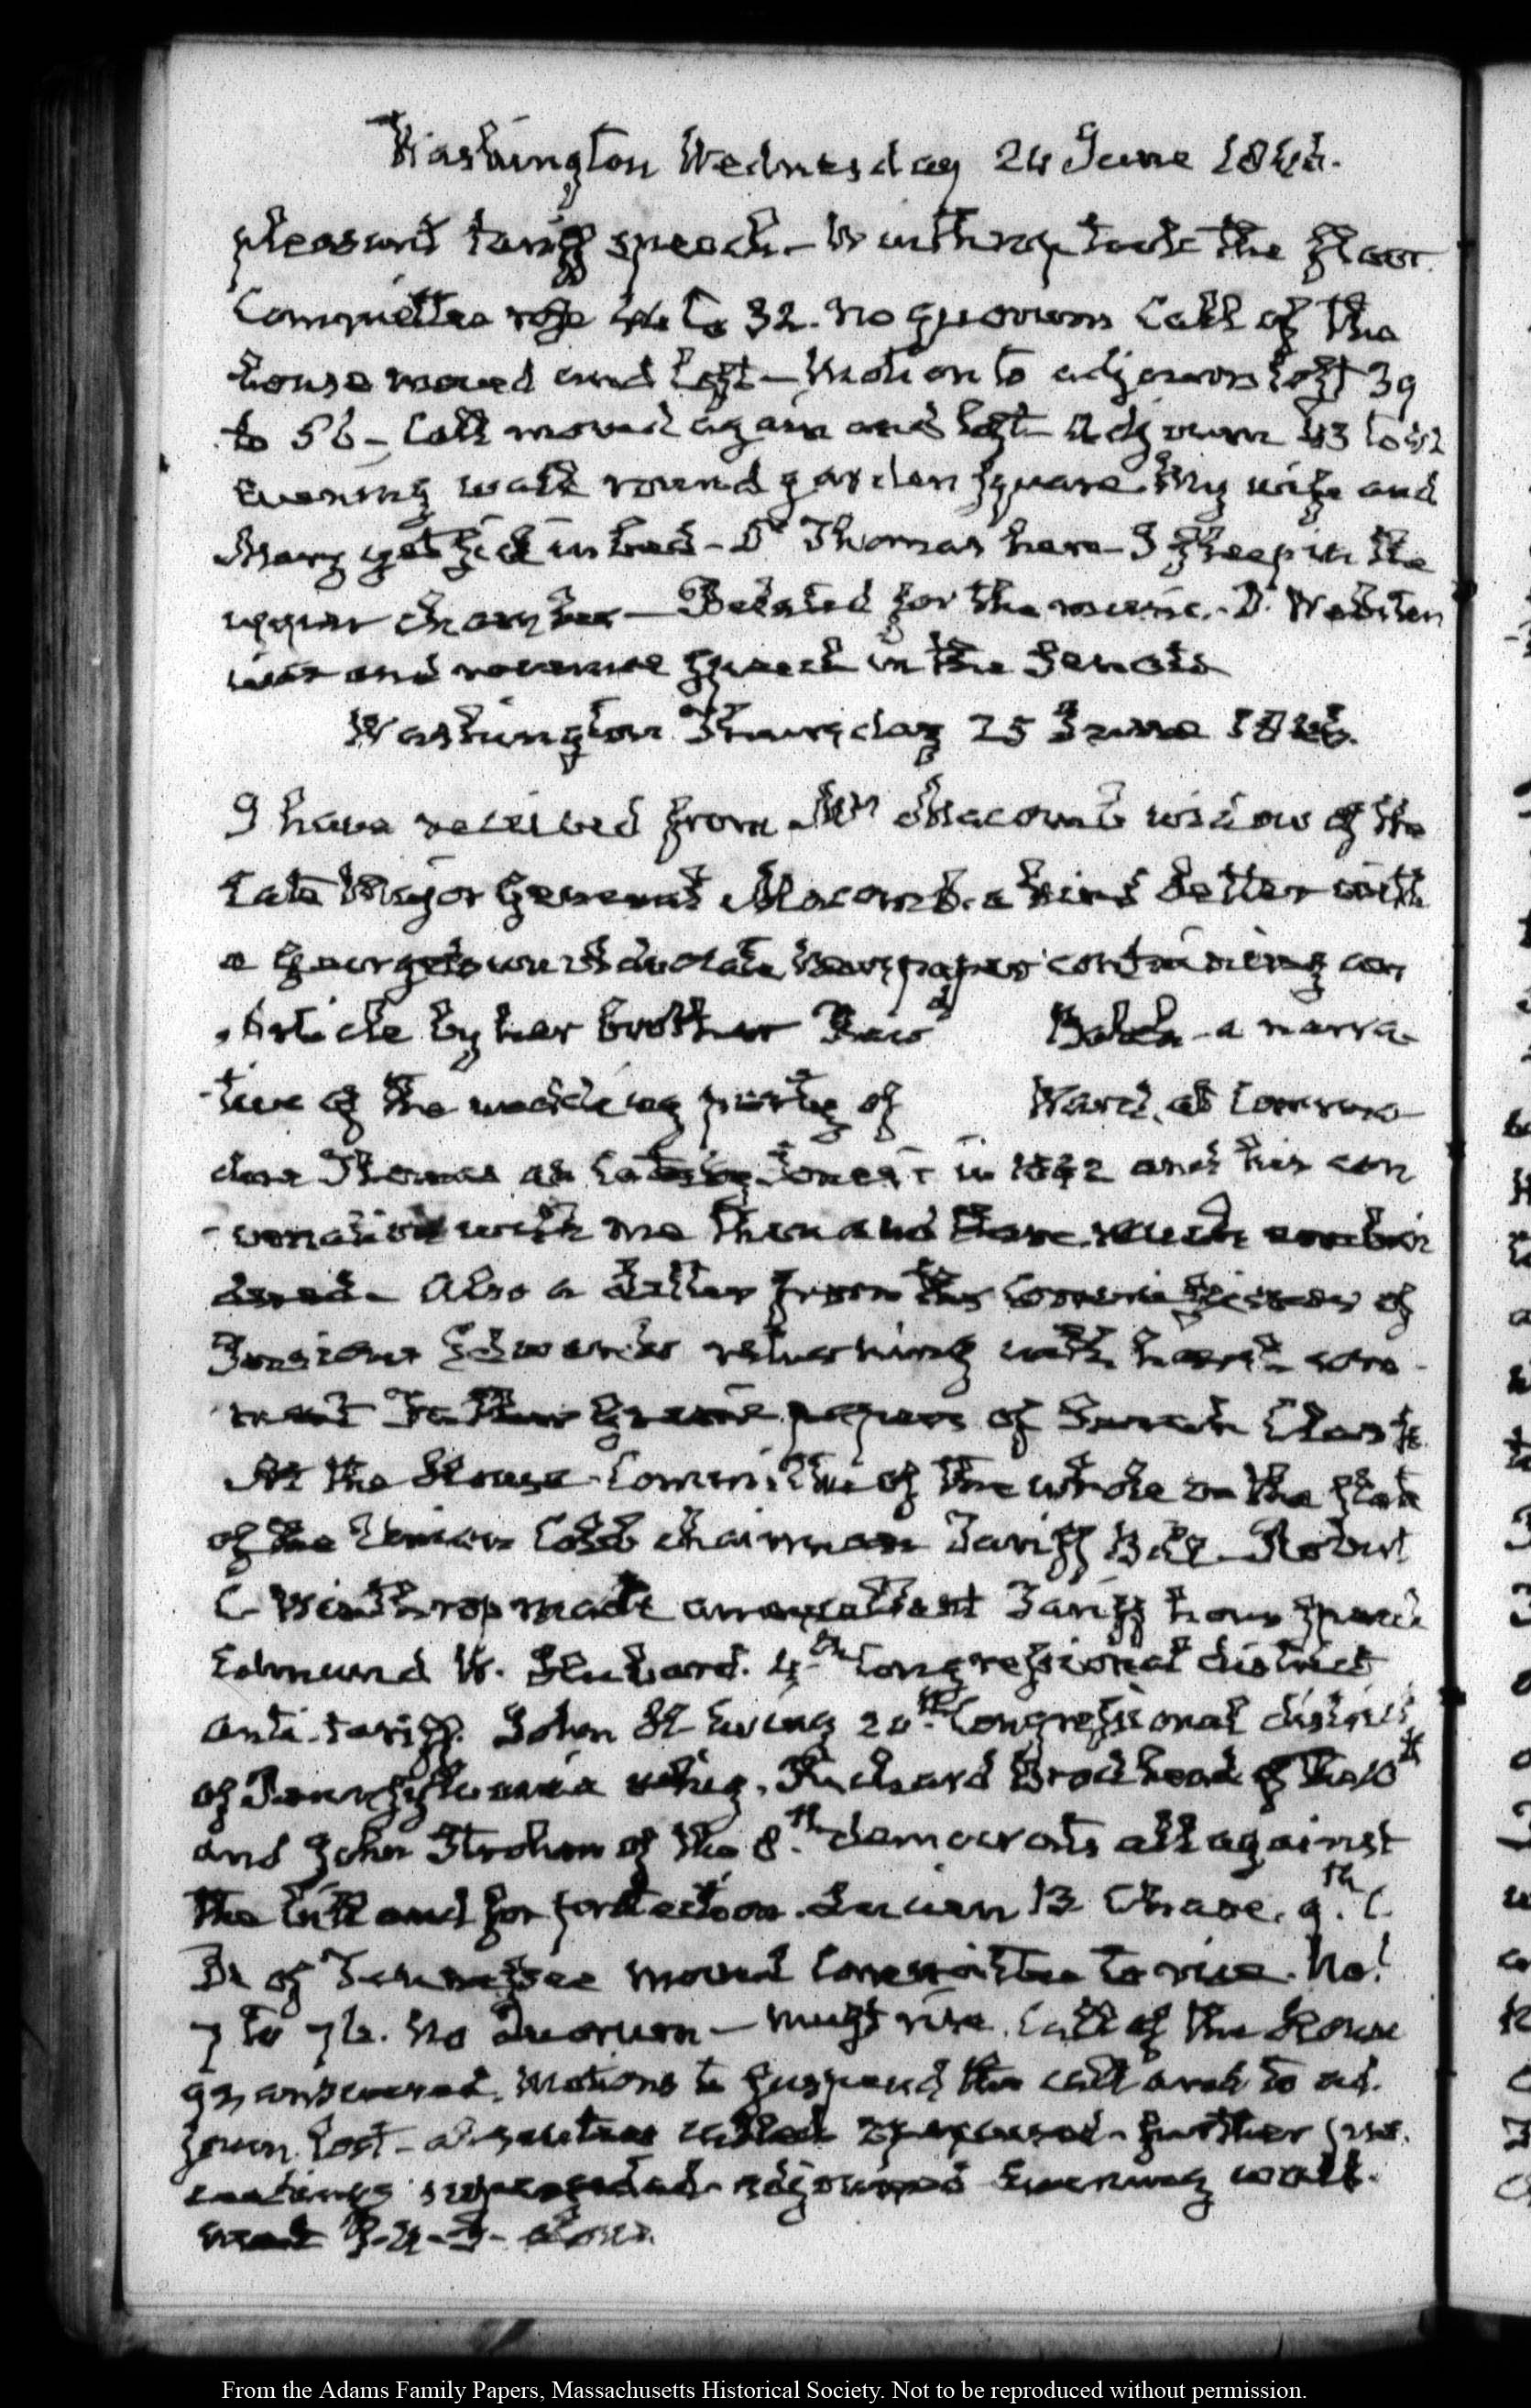 Washington Wednesday 24 June 1846.
pleasant tariff speech - Winthrop took the floor
Committee rose 44 to 32. no quorum Call of the
house moved and lost - Motion to adjourn lost 39
to 56 - Call moved again and lost Adjourn 43 to 42
Evening walk round garden square. My wife and
Mary yet sick in bed - Dr Thomas here - I sleep in the
upper chamber - Belated for the music. - D. Webster
war and revenue speech in the Senate
Washington Thursday 25 June 1846.
I have received from Mrs Macomb widow of the
late Major General Macomb. a kind letter with
a Georgetown Advocate Newspaper containing an
Article by her brother Revd Balch - a narra-
tive of the wedding party of Ward, at Commo-
dore Thomas ap Catesby Jones's in 1842 and his con
versation with me then and there much
Also a letter from the Commissioner of
Pensions Edwards returning with
papers of Sarah
At the House. Committee of the whole on the state
of the Union Cobb chairman Tariff Bill - Robert
C. Winthrop made an excellent Tariff hour speech
Edmund W. Hubard. 4th Congressional district
anti-tariff. John H Ewing 20th Congressional district
of Pennsylvania whig. Richard Brodhead of the 10th
and John Strohm of the 8th democrats all against
the bill and for protection. Lucien B Chase. 9th C.
D. of Tennessee moved Committee to rise. No!
7 to 76. No Quorum - must rise. Call of the House
93 answered. Motions to suspend the call and to ad.
journ lost - absentees called excused - further pro.
ceedings suspended - adjourned Evening walk.